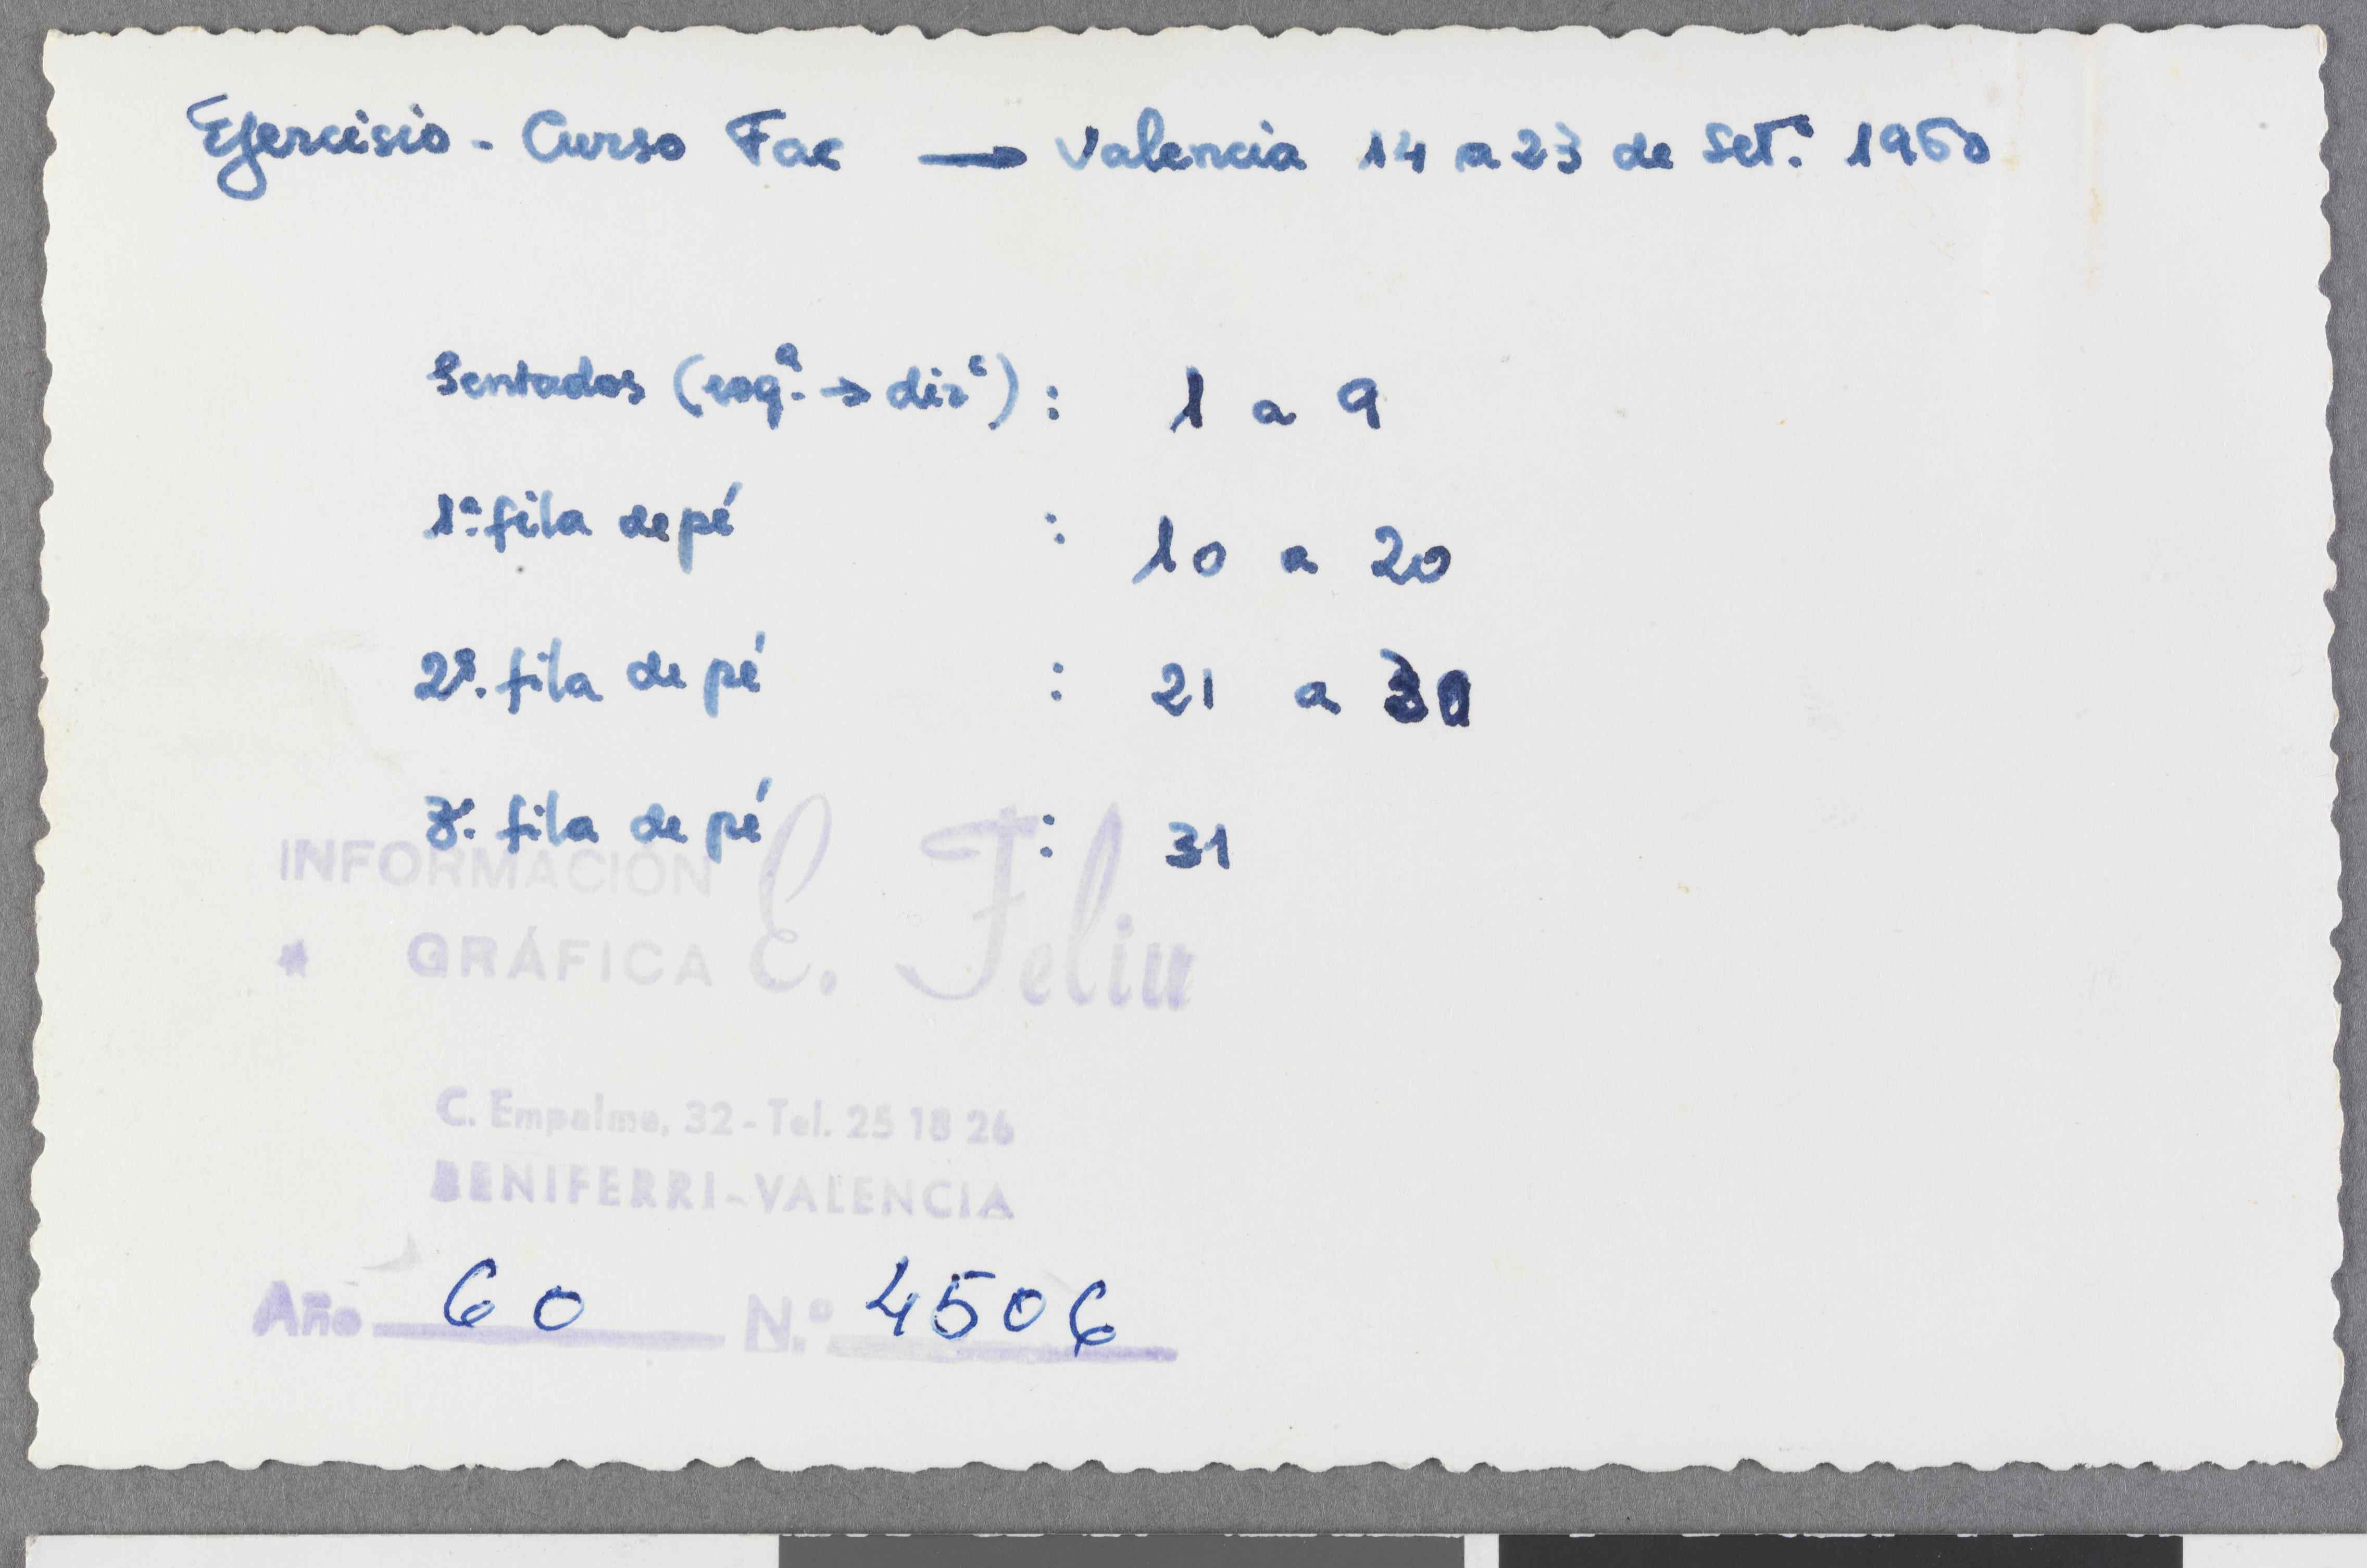 Ejercisio - Curso Fac → Valencia 14 a 23 de Setº. 1960
Sentados (esqª. → dirª) : 1 a 9
1ª. fila de pé : 10 a 20
2ª. fila de pé : 21 a 30
3ª. fila de pé : 31
INFORMACIÓN
* GRÁFICA E. Feliu
C. Empalme, 32 - Tel. 25 18 26
BENIFERRI - VALENCIA
Año 60 N.º 4506